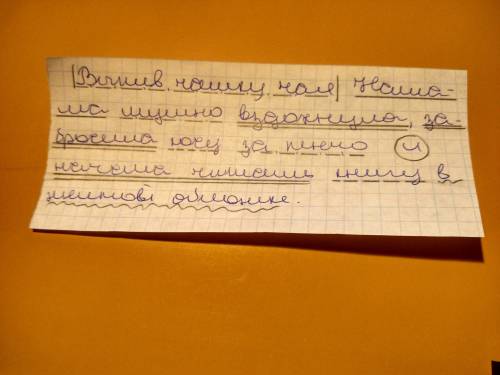 |Выпив чашку чая| Ната-
ша шумно вздохнула, за-
бросила косу за плечо и
начала читать книгу в
желтой обложке.